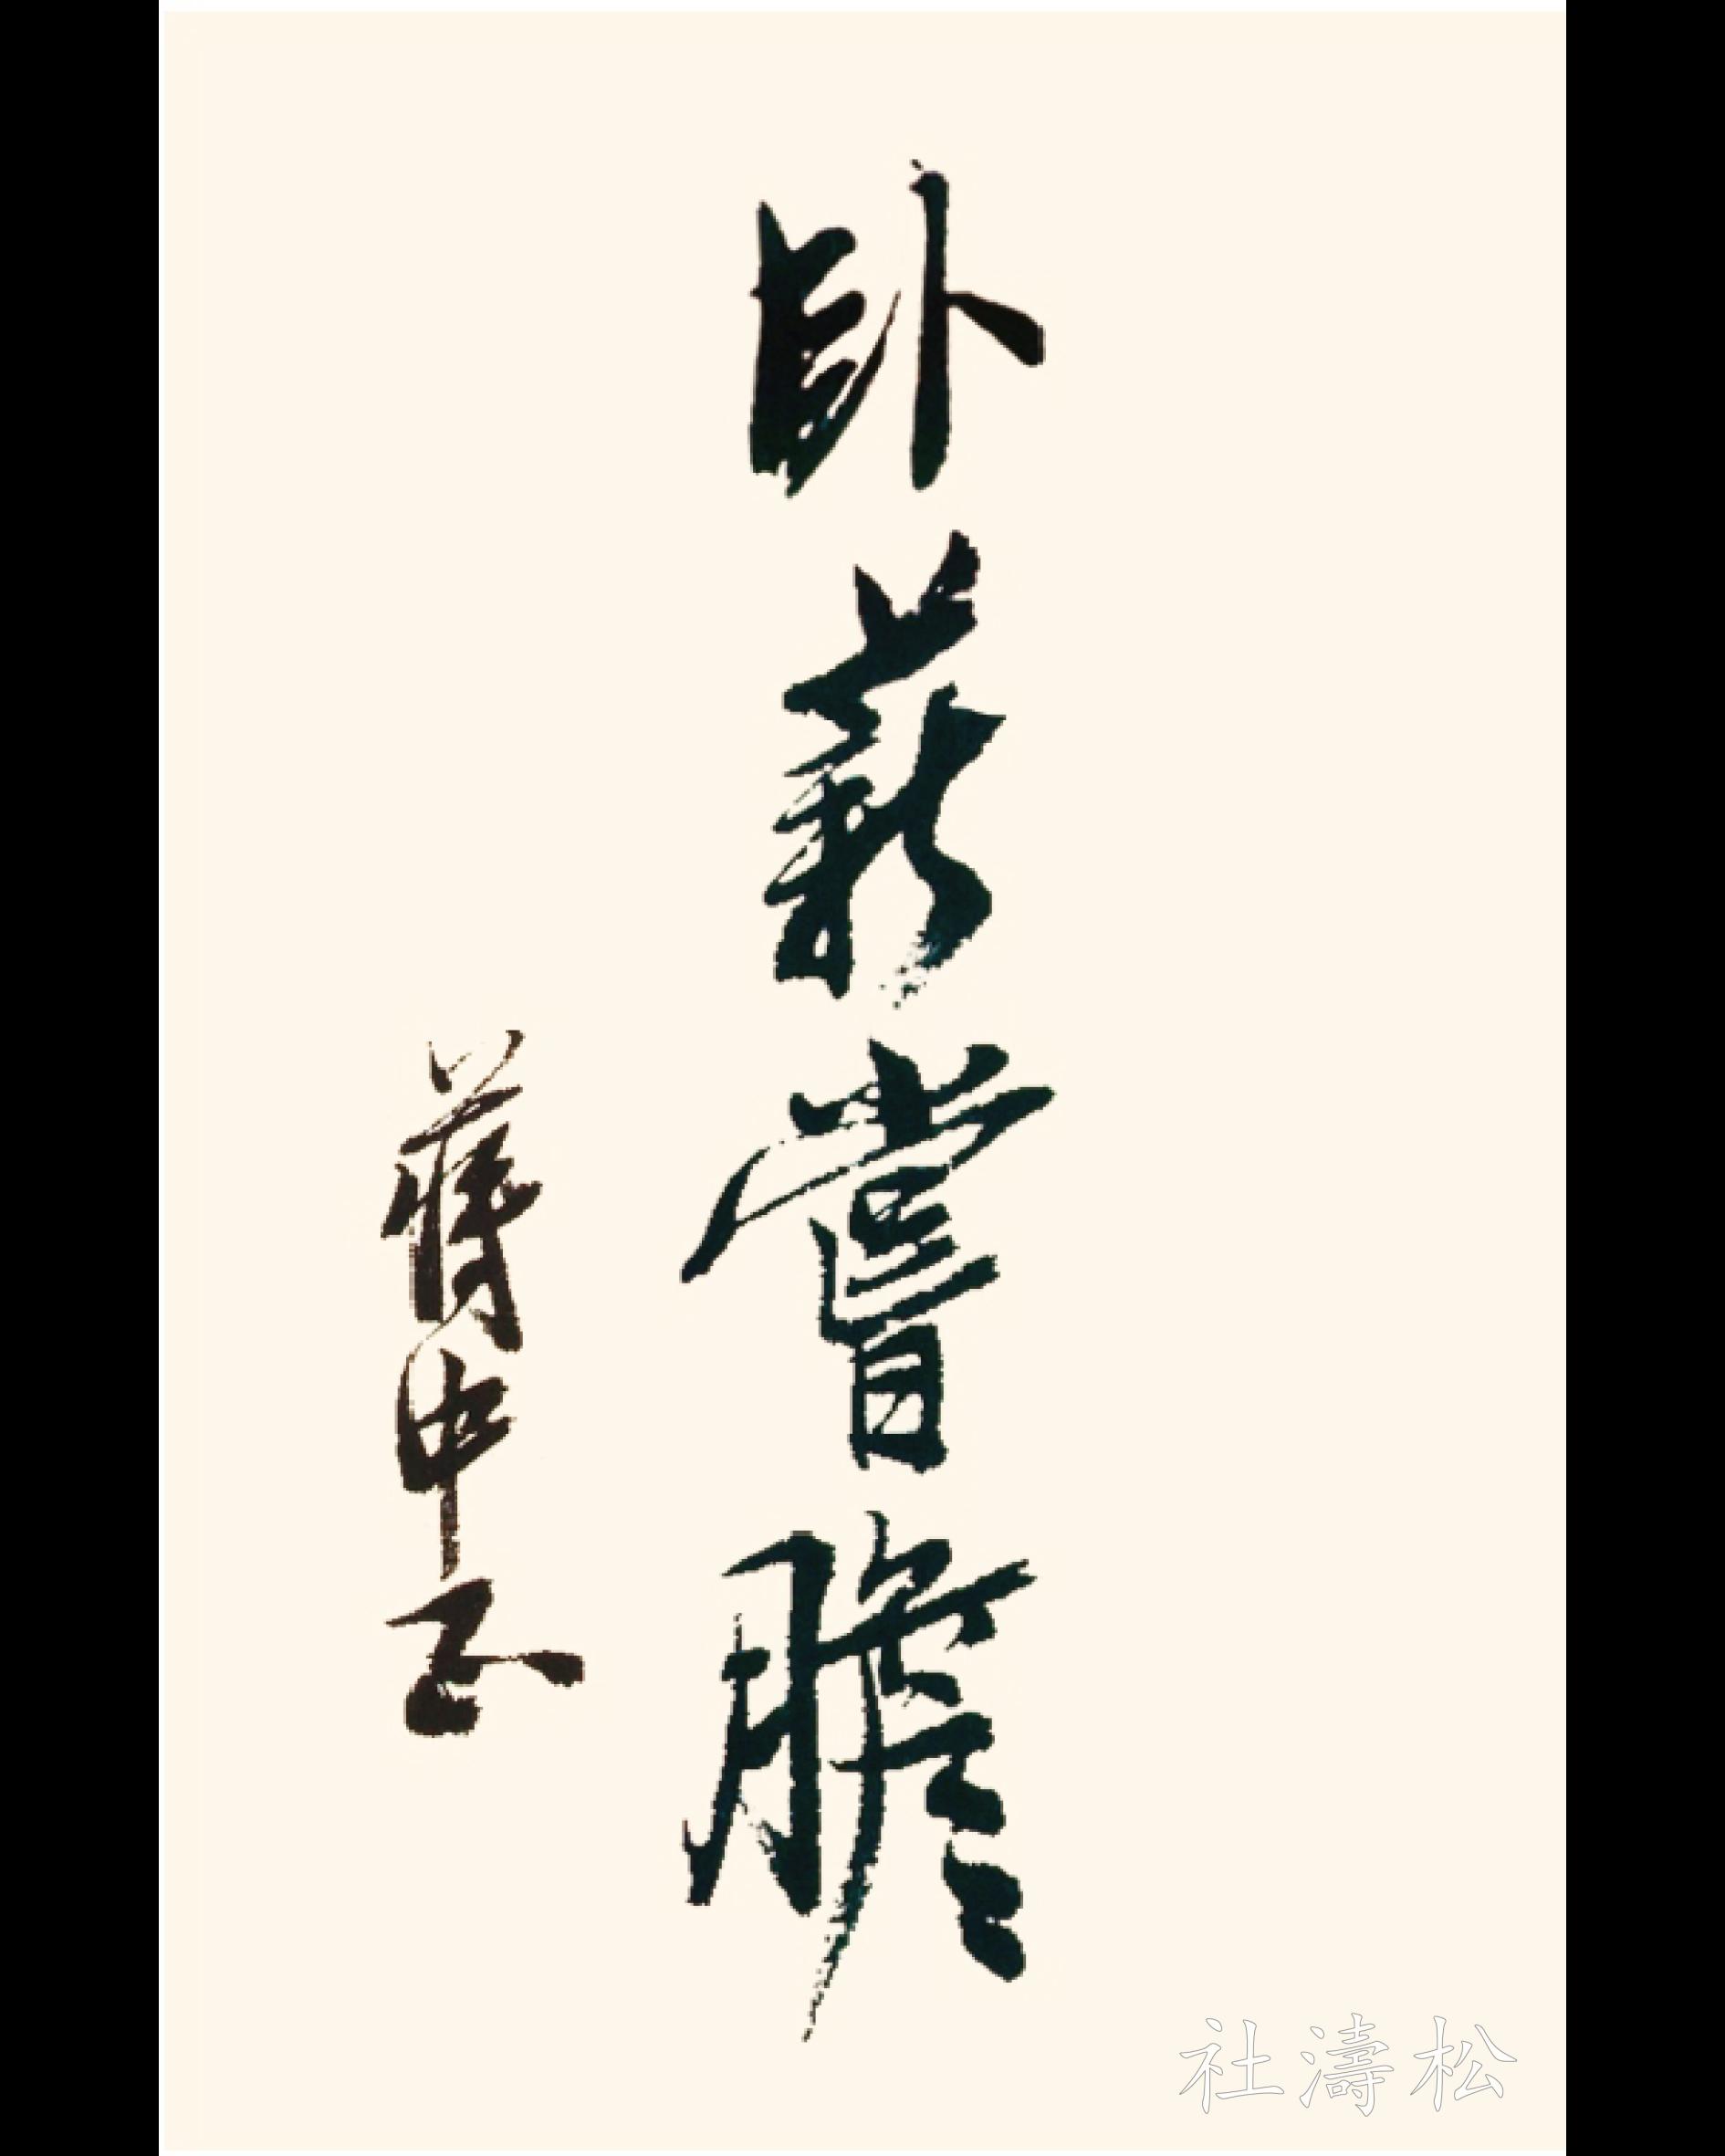 臥薪嘗膽
蔣中正
松濤社